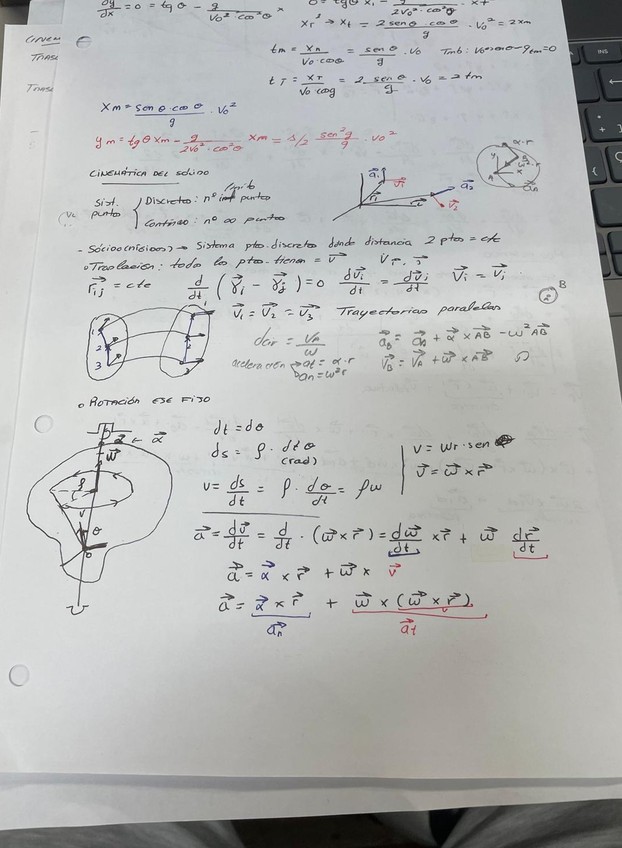 dy/dx = 0 = tg θ - g/(V₀²·cos²θ) x
xr² → xt = 2 sen θ · cos θ/g · V₀² = 2xm
tm = xm/(V₀·cosθ) = sen θ/g · V₀
tT = xT/(V₀ cosg) = 2 sen θ/g · V₀ = 2 tm
xm = sen θ · cos θ/g · V₀²
ym = tgθ xm - g/(2V₀²·cos²θ) xm = 1/2 sen²g/g · V₀²
CINEMÁTICA DEL SÓLIDO
Sist. punto
Discreto: nº finito puntos
Continuo: nº ∞ puntos
(rígidos) → Sistema ptos. discretos donde distancia 2 ptos = cte
Traslación: todos los ptos. tienen = v⃗
r⃗ij = cte d/dt (r⃗i - r⃗j) = 0 dv⃗i/dt = dv⃗j/dt V⃗i = V⃗j
v⃗₁ = v⃗₂ = v⃗₃ Trayectorias paralelas
dcir = VA/ω
a⃗B = a⃗A + α⃗ × AB⃗ - ω² AB⃗
aceleración → at = α·r
an = ω²r
v⃗B = v⃗A + ω⃗ × AB⃗
ROTACIÓN EJE FIJO
dt = dθ
ds = ρ · dtθ
(rad)
v = ds/dt = ρ · dθ/dt = ρω
v = ωr·sen
v⃗ = ω⃗ × r⃗
a⃗ = dv⃗/dt = d/dt · (ω⃗ × r⃗) = dω⃗/dt × r⃗ + ω⃗ dr⃗/dt
a⃗ = α⃗ × r⃗ + ω⃗ × v⃗
a⃗ = α⃗ × r⃗ + ω⃗ × (ω⃗ × r⃗)
a⃗n a⃗t